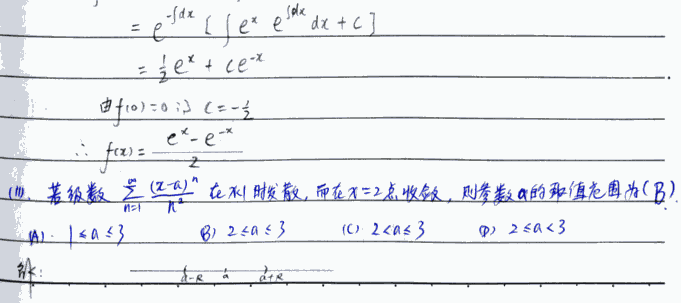 = e^{-∫dx} [ ∫ e^x e^{∫dx} dx + C ]
= 1/2 e^x + Ce^{-x}
由f(0)=0 ⇒ C = -1/2
∴ f(x) = (e^x - e^{-x})/2
(11). 若级数 ∑_{n=1}^{∞} (x-a)^n/n^2 在x<1时发散,而在x=2点收敛,则参数a的取值范围为(B)
(A). 1≤a≤3 (B) 2≤a≤3 (C) 2<a≤3 (D) 2≤a<3
解:
a-R a a+R